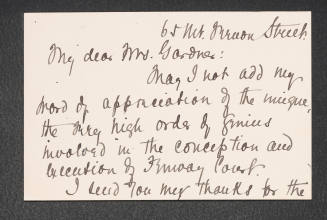 65 Mt. Vernon Street.
My dear Mrs. Gardner:
May I not add my
word of appreciation of the unique,
the very high order of genius
involved in the conception and
execution of Fenway Court.
I send you my thanks for the